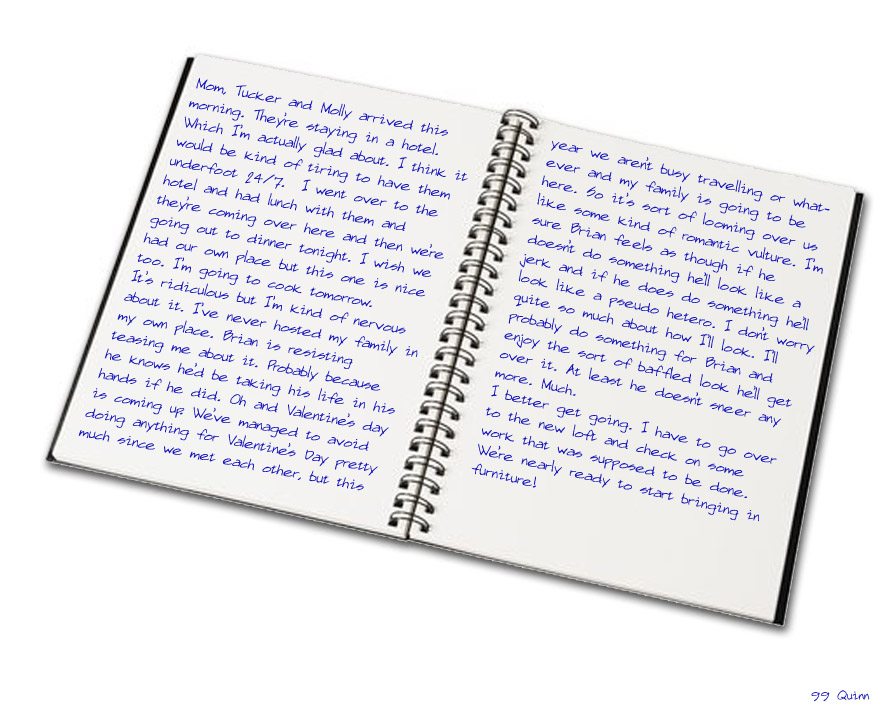 Mom, Tucker and Molly arrived this
morning. They're staying in a hotel.
Which I'm actually glad about. I think it
would be kind of tiring to have them
underfoot 24/7. I went over to the
hotel and had lunch with them and
they're coming over here and then we're
going out to dinner tonight. I wish we
had our own place but this one is nice
too. I'm going to cook tomorrow.
It's ridiculous but I'm kind of nervous
about it. I've never hosted my family in
my own place. Brian is resisting
teasing me about it. Probably because
he knows he'd be taking his life in his
hands if he did. Oh and Valentine's day
is coming up We've managed to avoid
doing anything for Valentine's Day pretty
much since we met each other, but this
year we aren't busy travelling or what-
ever and my family is going to be
here. So it's sort of looming over us
like some kind of romantic vulture. I'm
sure Brian feels as though if he
doesn't do something he'll look like a
jerk and if he does do something he'll
look like a pseudo hetero. I don't worry
quite so much about how I'll look. I'll
probably do something for Brian and
enjoy the sort of baffled look he'll get
over it. At least he doesn't sneer any
more. Much.
I better get going. I have to go over
to the new loft and check on some
work that was supposed to be done.
We're nearly ready to start bringing in
furniture!
99 Quinn